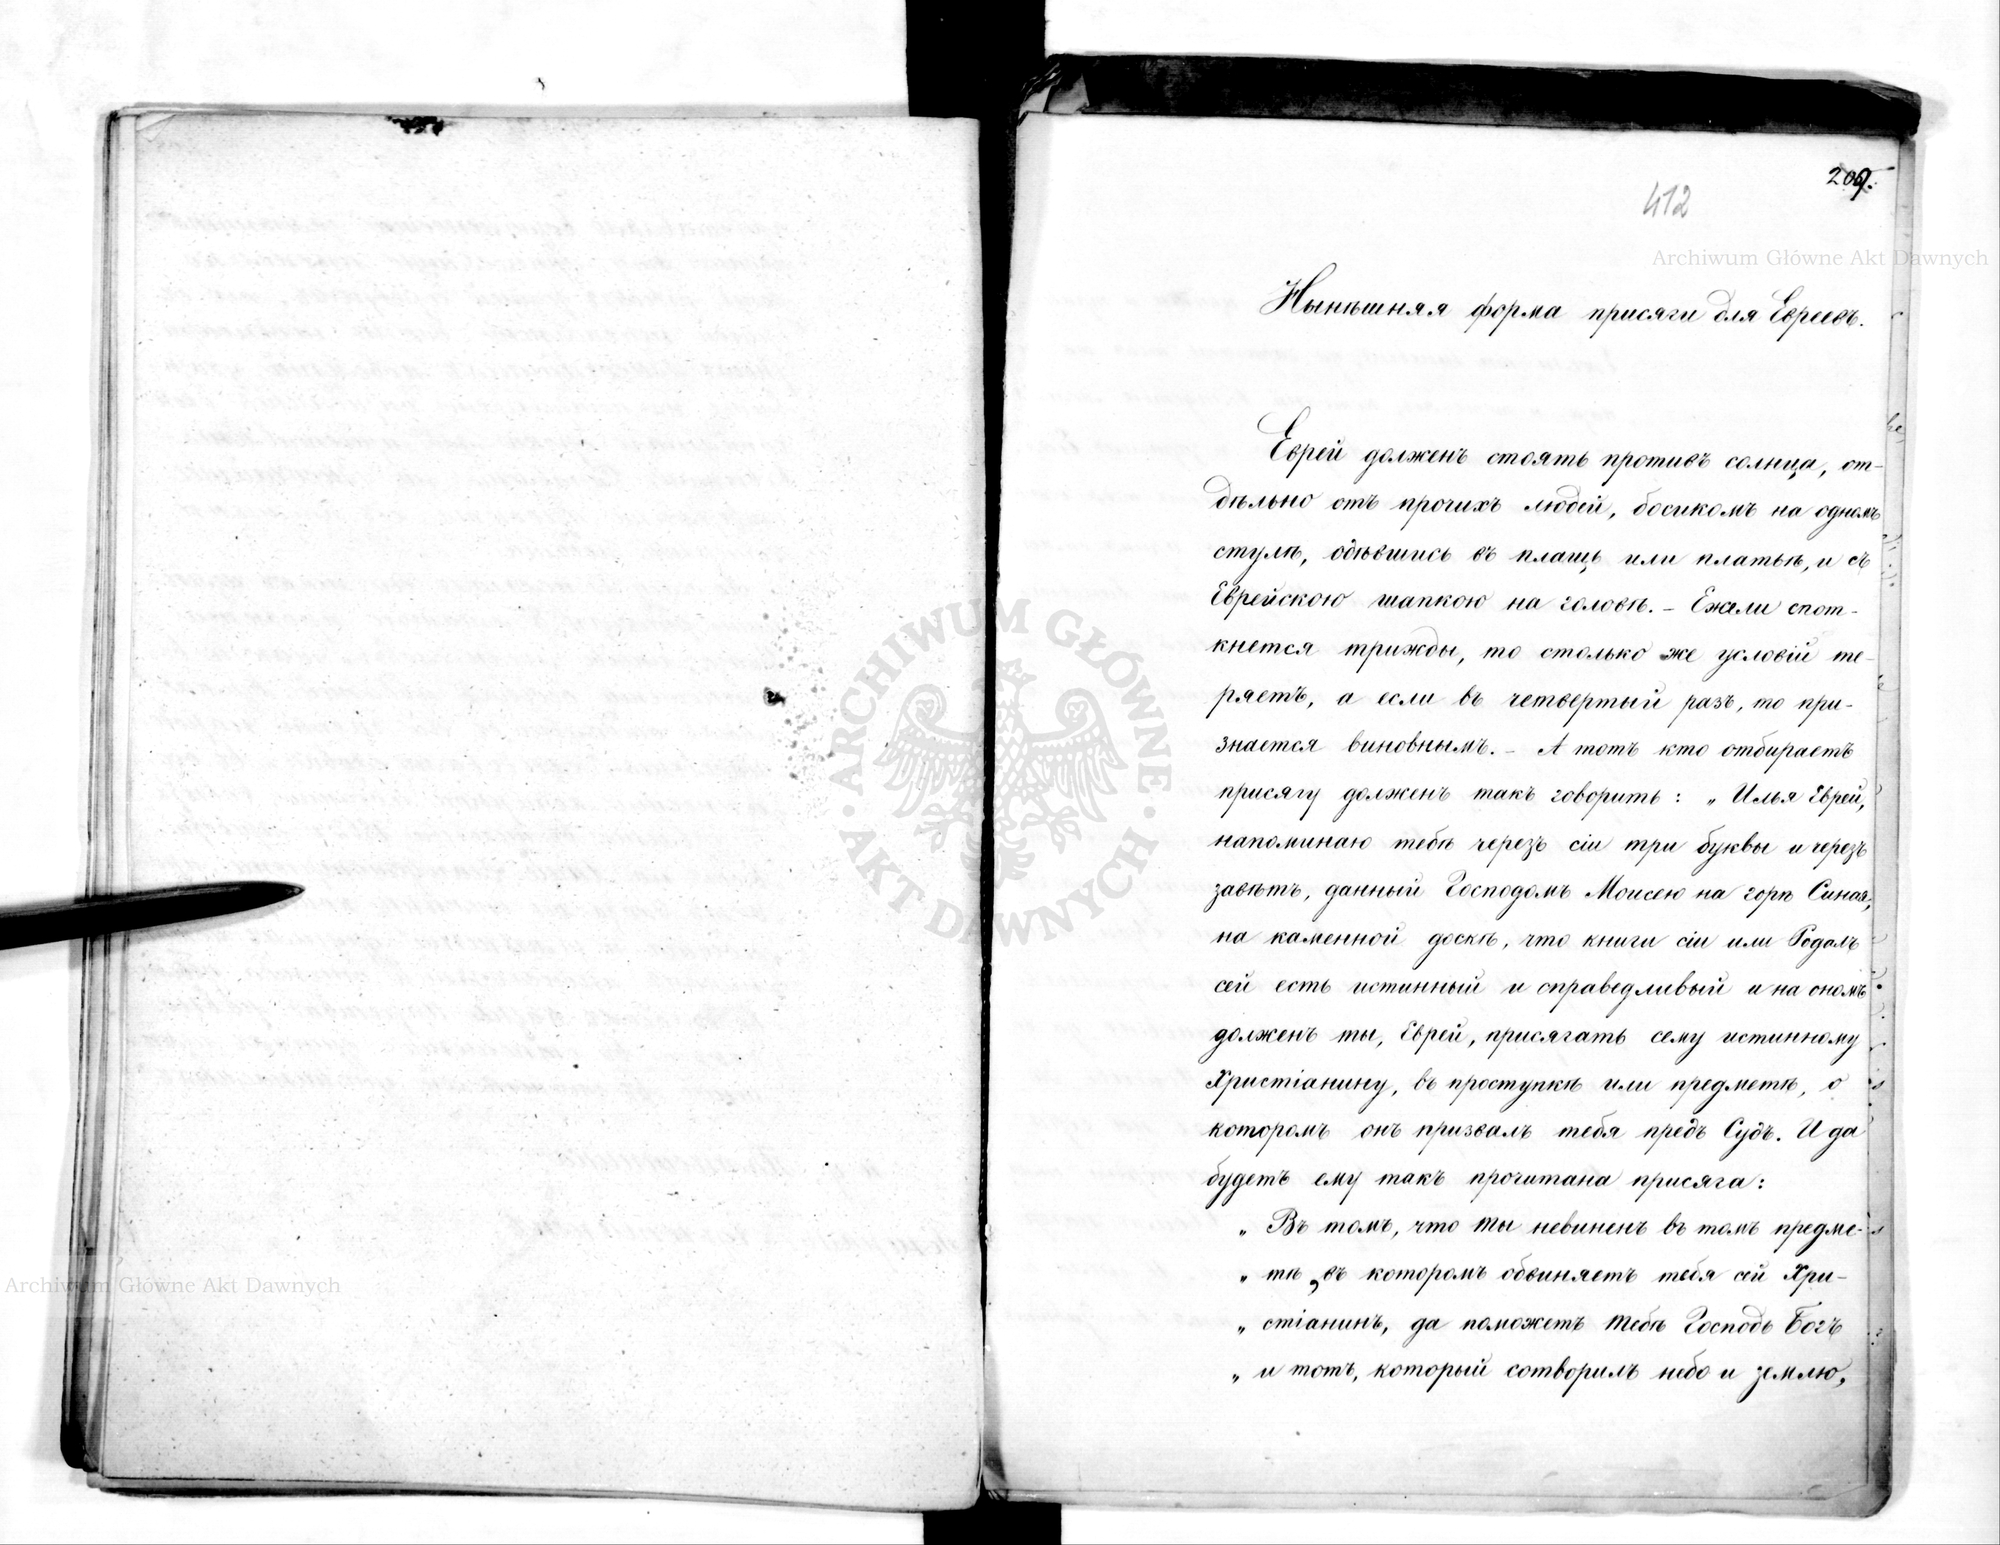 209.
412
Archiwum Główne Akt Dawnych
Нынѣшняя форма присяги для Евреевъ.
Еврей долженъ стоять противъ солнца, от-
дѣльно отъ прочихъ людей, босикомъ на одномъ
стулѣ, одѣвшись въ плащь или платье, и съ
Еврейскою шапкою на головѣ. – Ежели спот-
кнется трижды, то столько же условій те-
ряетъ, а если въ четвертый разъ, то при-
знается виновнымъ. – А тотъ кто отбираетъ
присягу долженъ такъ говорить: „ Илья Еврей,
напоминаю тебѣ черезъ сіи три буквы и черезъ
завѣтъ, данный Господомъ Моисею на горѣ Синая,
на каменной доскѣ, что книги сіи или Родалъ
сей есть истинный и справедливый и на ономъ
долженъ ты, Еврей, присягать сему истинному
Христіанину, въ проступкѣ или предметѣ, о
которомъ онъ призвалъ тебя предъ Судъ. И да
будетъ ему такъ прочитана присяга:
„ Въ томъ, что ты невиненъ въ томъ предме-
„ тѣ, въ которомъ обвиняетъ тебя сей Хри-
„ стіанинъ, да поможетъ тебѣ Господь Богъ
„ и тотъ, который сотворилъ небо и землю,
ARCHIWUM GŁÓWNE
AKT DAWNYCH
Archiwum Główne Akt Dawnych